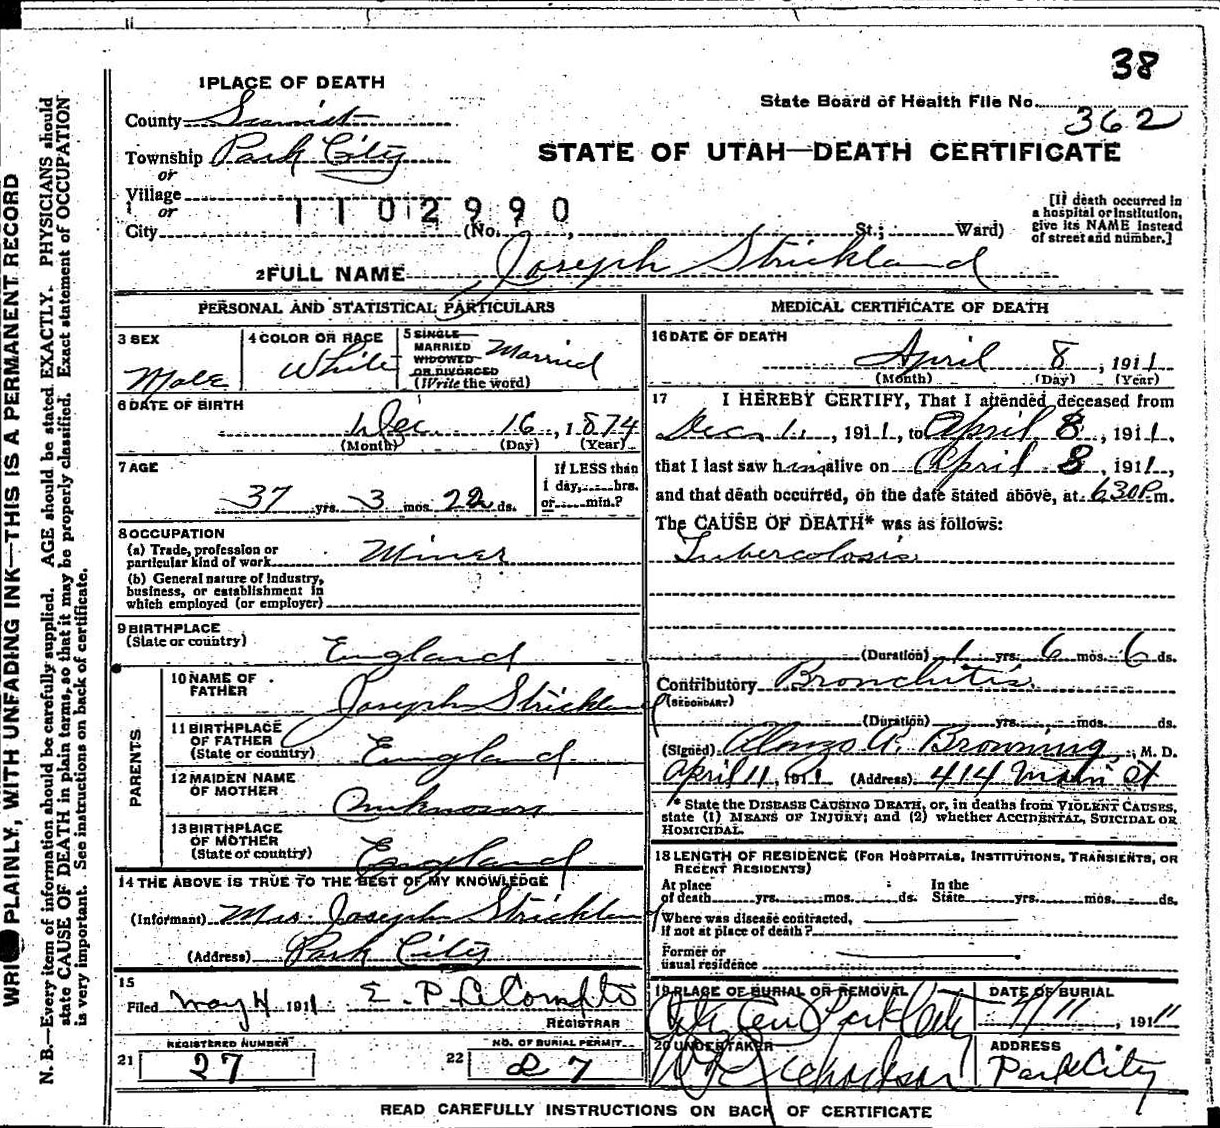 38
1 PLACE OF DEATH
State Board of Health File No. 362
County Summit
STATE OF UTAH—DEATH CERTIFICATE
Township Park City
or
Village
or
1102990
City (No. , St.; Ward)
[If death occurred in
a hospital or institution,
give its NAME instead
of street and number.]
2 FULL NAME Joseph Strickland
PERSONAL AND STATISTICAL PARTICULARS
3 SEX
Male
4 COLOR OR RACE
White
5 SINGLE
MARRIED
WIDOWED
OR DIVORCED
(Write the word)
Married
6 DATE OF BIRTH
Dec. 16, 1874
(Month) (Day) (Year)
7 AGE
37 yrs. 3 mos. 22 ds.
If LESS than
1 day, hrs.
or min.?
8 OCCUPATION
(a) Trade, profession or
particular kind of work Miner
(b) General nature of industry,
business, or establishment in
which employed (or employer)
9 BIRTHPLACE
(State or country) England
PARENTS
10 NAME OF
FATHER Joseph Strickland
11 BIRTHPLACE
OF FATHER
(State or country) England
12 MAIDEN NAME
OF MOTHER Unknown
13 BIRTHPLACE
OF MOTHER
(State or country) England
14 THE ABOVE IS TRUE TO THE BEST OF MY KNOWLEDGE
(Informant) Mrs. Joseph Strickland
(Address) Park City
15
Filed May 4 1911 E. P.
REGISTRAR
21 REGISTERED NUMBER
27
22 NO. OF BURIAL PERMIT
27
MEDICAL CERTIFICATE OF DEATH
16 DATE OF DEATH
April 8, 1911
(Month) (Day) (Year)
17 I HEREBY CERTIFY, That I attended deceased from
Dec. 1, 1911, to April 8, 1911,
that I last saw him alive on April 8, 1911,
and that death occurred, on the date stated above, at 630P m.
The CAUSE OF DEATH* was as follows:
Tubercolosis
(Duration) 1 yrs. 6 mos. 6 ds.
Contributory Bronchitis
(SECONDARY)
(Duration) yrs. mos. ds.
(Signed) Alonzo A. Browning, M. D.
April 11, 1911 (Address) 414 Main St
* State the DISEASE CAUSING DEATH, or, in deaths from VIOLENT CAUSES,
state (1) MEANS OF INJURY; and (2) whether ACCIDENTAL, SUICIDAL OR
HOMICIDAL.
18 LENGTH OF RESIDENCE (FOR HOSPITALS, INSTITUTIONS, TRANSIENTS, OR
RECENT RESIDENTS)
At place
of death yrs. mos. ds.
In the
State yrs. mos. ds.
Where was disease contracted,
if not at place of death?
Former or
usual residence
19 PLACE OF BURIAL OR REMOVAL
City Cem Park City
DATE OF BURIAL
4/11, 1911
20 UNDERTAKER
ADDRESS
Park City
READ CAREFULLY INSTRUCTIONS ON BACK OF CERTIFICATE
WRITE PLAINLY, WITH UNFADING INK—THIS IS A PERMANENT RECORD
N. B.—Every item of information should be carefully supplied. AGE should be stated EXACTLY. PHYSICIANS should
state CAUSE OF DEATH in plain terms, so that it may be properly classified. Exact statement of OCCUPATION
is very important. See instructions on back of certificate.